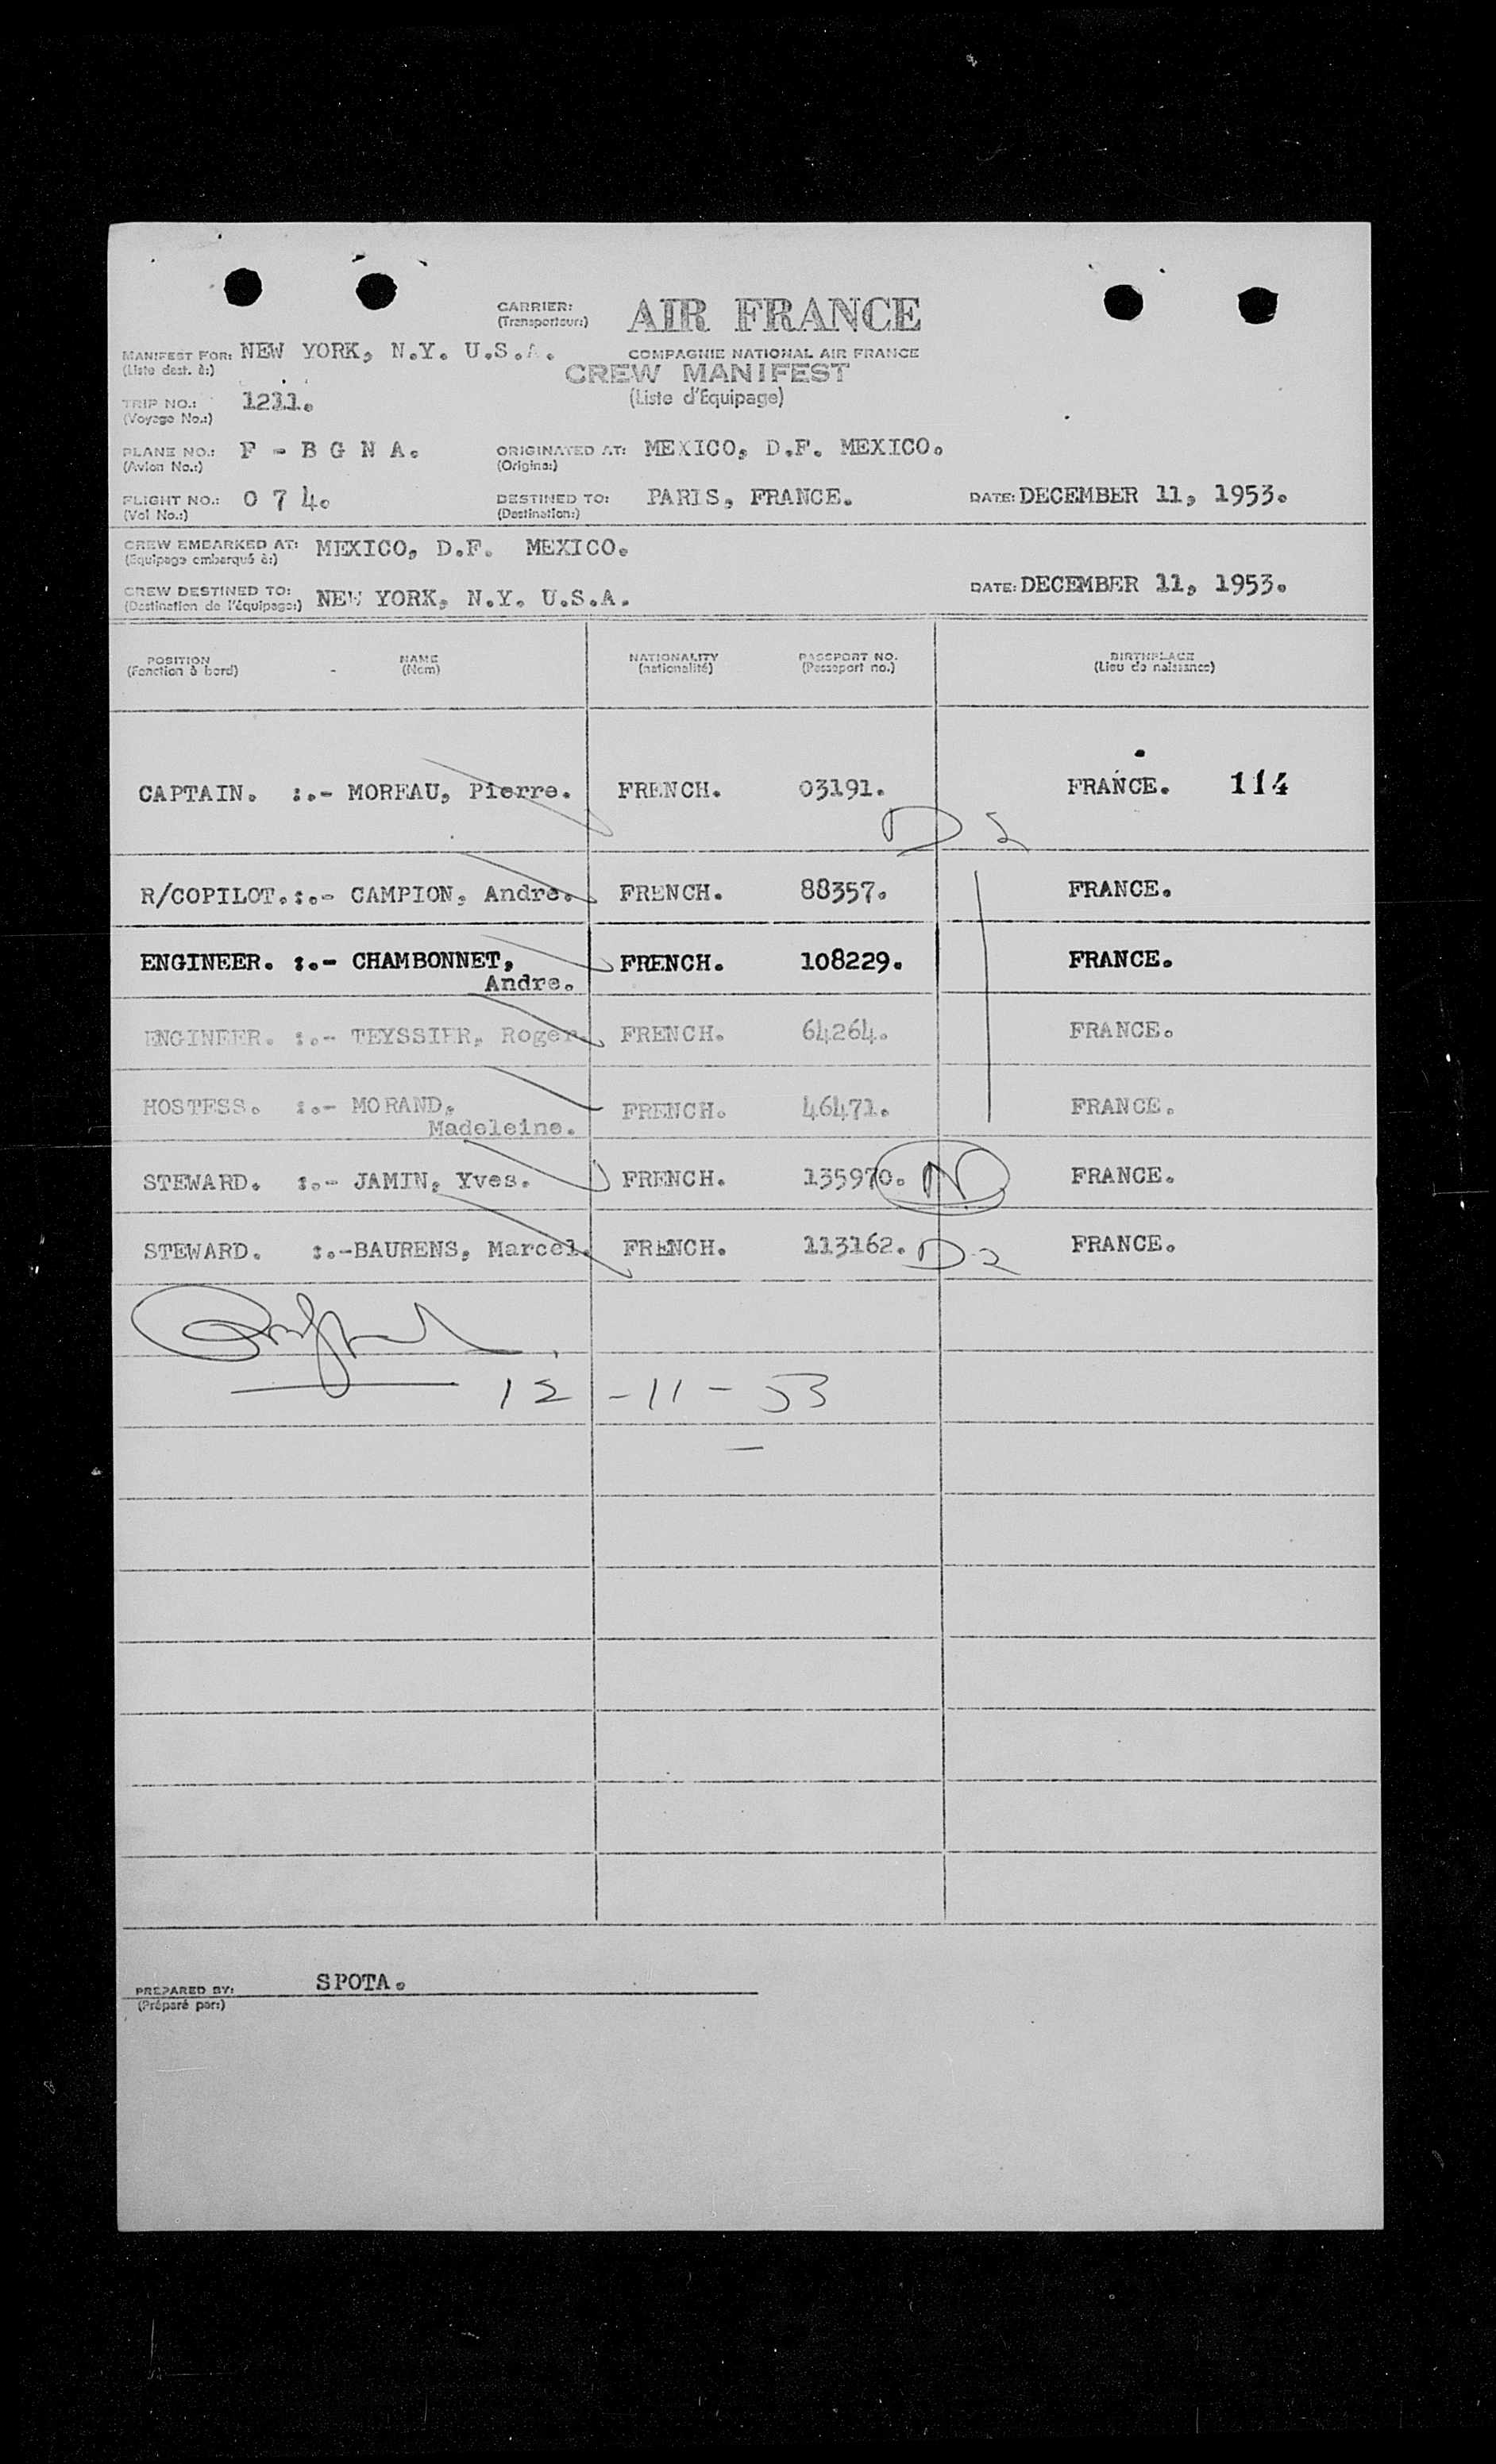 CARRIER: AIR FRANCE
(Transporteur:)
MANIFEST FOR: NEW YORK, N.Y. U.S.A. COMPAGNIE NATIONAL AIR FRANCE
(Liste dest. à:) CREW MANIFEST
TRIP NO.: 1211. (Liste d'Equipage)
(Voyage No.:)
PLANE NO.: F - B G N A. ORIGINATED AT: MEXICO, D.F. MEXICO.
(Avion No.:) (Origine:)
FLIGHT NO.: 0 7 4. DESTINED TO: PARIS, FRANCE. DATE: DECEMBER 11, 1953.
(Vol No.:) (Destination:)
CREW EMBARKED AT: MEXICO, D.F. MEXICO.
(Equipage embarqué à:)
CREW DESTINED TO: NEW YORK, N.Y. U.S.A. DATE: DECEMBER 11, 1953.
(Destination de l'équipage:)
POSITION NAME NATIONALITY PASSPORT NO. BIRTHPLACE
(Fonction à bord) - (Nom) (nationalité) (Passeport no.) (Lieu de naissance)
CAPTAIN. :.- MOREAU, Pierre. FRENCH. 03191. FRANCE. 114
D 2
R/COPILOT.:.- CAMPION, Andre. FRENCH. 88357. FRANCE.
ENGINEER. :.- CHAMBONNET, FRENCH. 108229. FRANCE.
Andre.
ENGINEER. :.- TEYSSIER, Roger. FRENCH. 64264. FRANCE.
HOSTESS. :.- MORAND, FRENCH. 46471. FRANCE.
Madeleine.
STEWARD. :.- JAMIN, Yves. FRENCH. 135970. N FRANCE.
STEWARD. :.-BAURENS, Marcel. FRENCH. 113162. D-2 FRANCE.
12-11-53
PREPARED BY: SPOTA.
(Préparé par:)